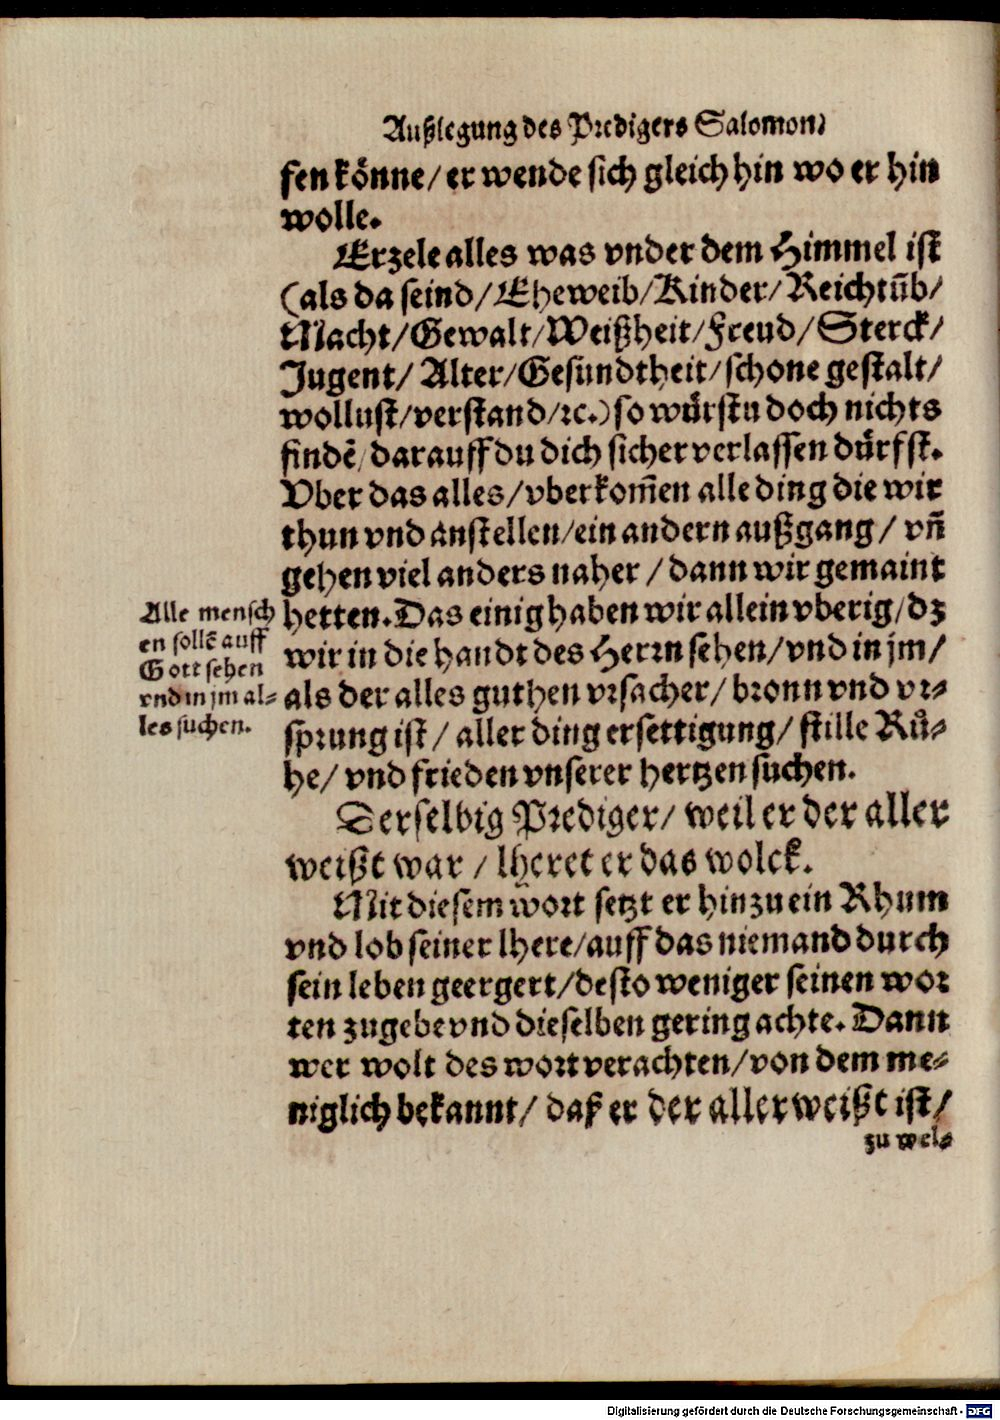 Außlegung des Predigers Salomon/
fen könne/ er wende sich gleich hin wo er hin
wolle.
Erzele alles was vnder dem Himmel ist
(als da seind/ Eheweib/ Kinder/ Reichtūb/
Macht/ Gewalt/ Weißheit/ Freud/ Sterck/
Jugent/ Alter/ Gesundtheit/ schone gestalt/
wollust/ verstand/ ꝛc.) so würstu doch nichts
findē/ darauff du dich sicher verlassen dürfst.
Vber das alles/ vberkom̄en alle ding die wir
thun vnd anstellen/ ein andern außgang/ vn̄
gehen viel anders naher / dann wir gemaint
hetten. Das einig haben wir allein vberig/ dz
wir in die handt des Herrn sehen/ vnd in jm/
als der alles guthen vrsacher/ bronn vnd vr-
sprung ist / aller ding ersettigung/ stille Rů-
he/ vnd frieden vnserer hertzen suchen.
Alle mensch
en sollē auff
Gott sehen
vnd in jm al-
les suchen.
Derselbig Prediger/ weil er der aller
weißt war / lheret er das wolck.
Mit diesem wort setzt er hinzu ein Rhum
vnd lob seiner lhere/ auff das niemand durch
sein leben geergert/ desto weniger seinen wor
ten zugebe vnd dieselben gering achte. Dann
wer wolt des wort verachten/ von dem me-
niglich bekannt/ daß er der aller weißt ist/
zu wel-
Digitalisierung gefördert durch die Deutsche Forschungsgemeinschaft - DFG